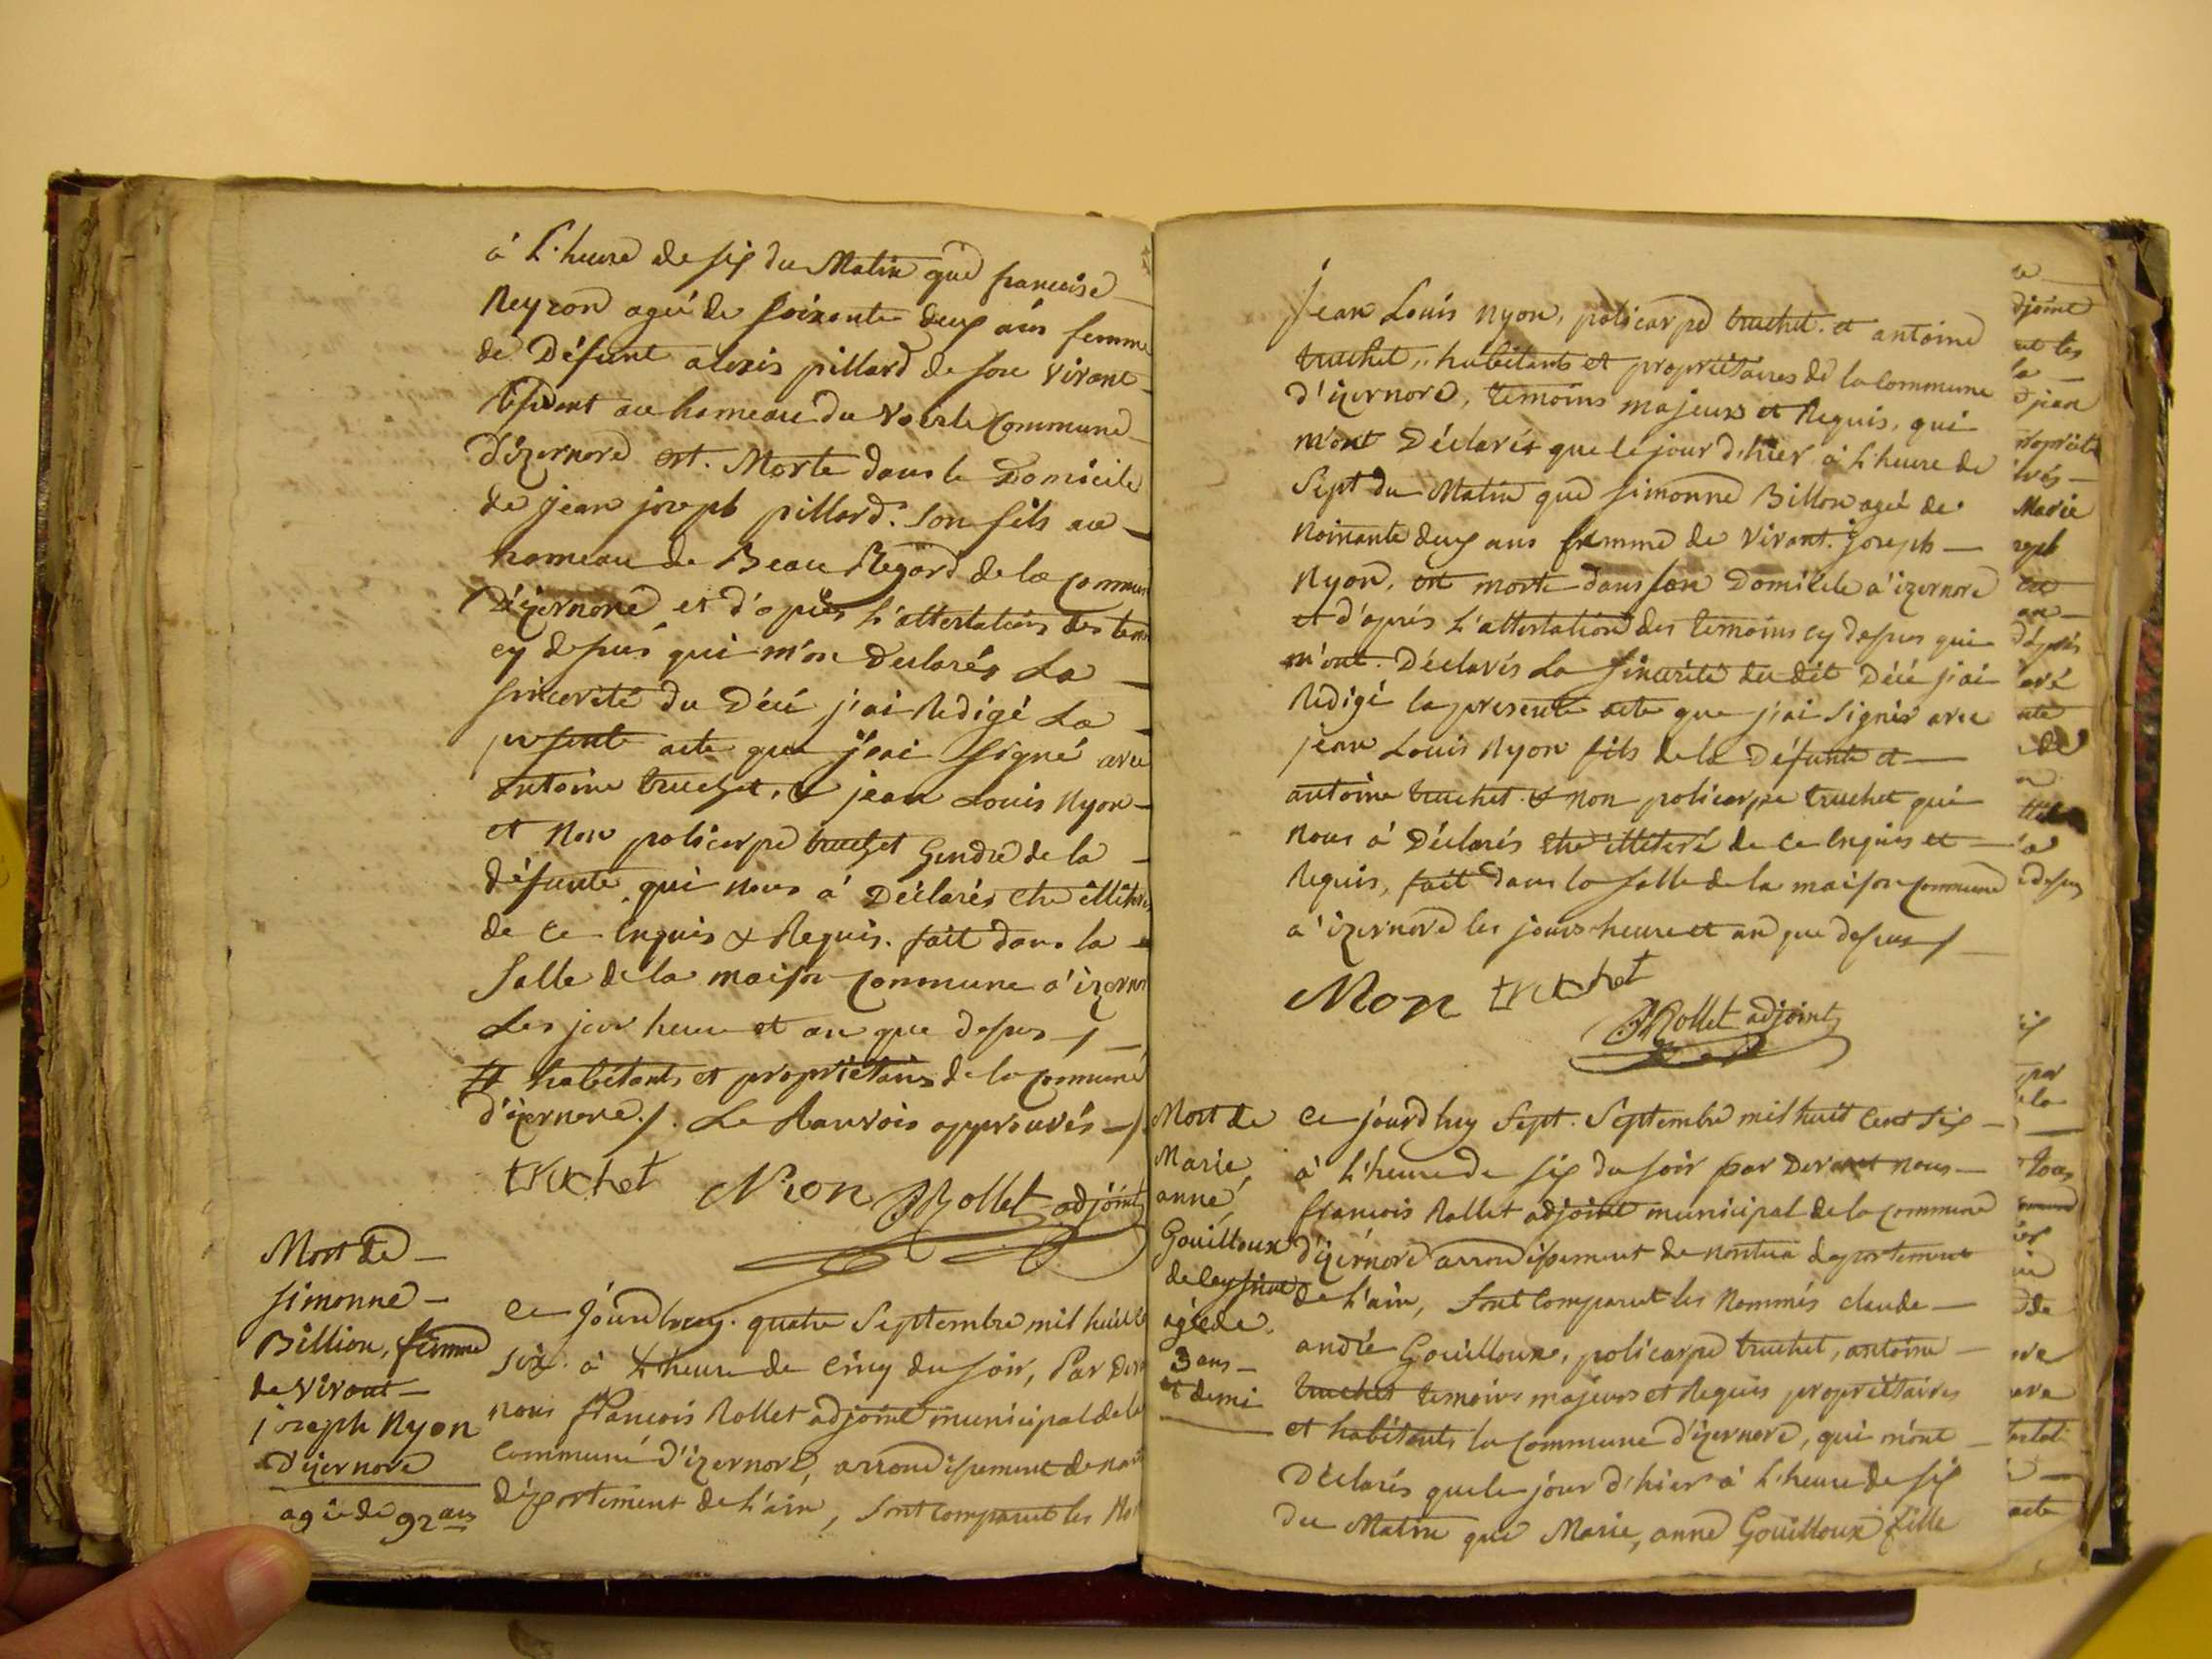 à L'heure de six du Matin que francoise
Neyron agée de soixante deux ans femme
de Défunt alexis pillard de son vivant
résident au hameau du Voerle Commune
D'izernore est. Morte dans le Domicile
de jean joseph pillard. son fils au
hameau de Beau Regard de la commun
D'izernore et d'après L'attestations des tem
cy dessus qui m'on Declarés La
sincerité du Décé j'ai Redigé La
presente acte que j'eai signé avec
antoine truchet, & jean Louis Nyon
et Non policarpe truchet Gendre de la
défunte, qui nous à Déclarés etre illiteres
de ce Enquis & Requis. fait dans la
salle de la maison Commune a'izernor
Les jour heure et an que dessus
# habitants et propriétaires de la commune
d'izernore./. Le Ranvoie approuvés
truchet Nion JRollet adjoint
Mort de
simonne
Billion, femme
de vivant
joseph Nyon
D'izernore
agée de 92 ans
Ce jourdhuy. quatre Septembre mil huit C
six. à L'heure de cinq du soir, Par Dev
nous francois Rollet adjoint municipal de la
Commune D'izernore, arrondissement de nan
département de L'ain, sont comparut les No
jean Louis Nyon, policarpe truchet. et antoine
truchet, habitants et propriétaires de la Commune
d'izernore, temoins majeurs et Requis, qui
m'ont Déclarés que le jour d'hier à L'heure de
Sept du Matin que simonne Billon agée de
Nonante deux ans femme de vivant. joseph
Nyon, est morte dans son Domicile a'izernore
et d'après L'attestation des temoins cy dessus qui
m'ont. Déclarés La sincerité du dit Décé j'ai
Redigé la presente acte que j'ai signér avec
jean Louis Nyon fils de la Défunte et
antoine truchet. & non policarpe truchet qui
nous à Déclarés etre illiteré de ce Enquis et
Requis, fait dans la salle de la maison commune
a'izernore les jours heure et an que dessus
Nion truchet
JRollet adjoint
Mort de
Marie,
anne,
Gouilloux
de Ceyssiat
agée de
3 ans
et demi
Ce jourdhuy Sept. Septembre mil huit Cent six
à L'heure de six du soir par Devant nous
francois Rollet adjoint municipal de la commune
d'izernore arrondissement de nantua departement
de L'ain, sont comparut les Nommés claude
andré Gouilloux, policarpe truchet, antoine
truchet temoins majeurs et Requis propriétaires
et habitants la commune d'izernore, qui m'ont
Déclarés que le jour d'hier à L'heure de six
du Matin que Marie, anne Gouilloux fille
djoint
et les
la
jean
Marie
oseph
acte